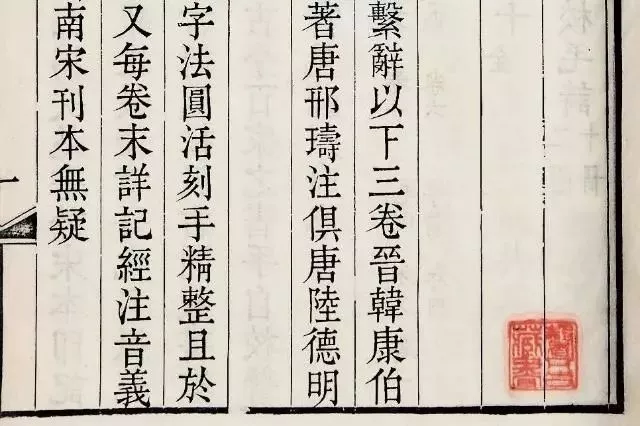 繫辭以下三卷晉韓康伯
著唐邢璹注俱唐陸德明
字法圓活刻手精整且於
又每卷末詳記經注音義
南宋刊本無疑
藏書